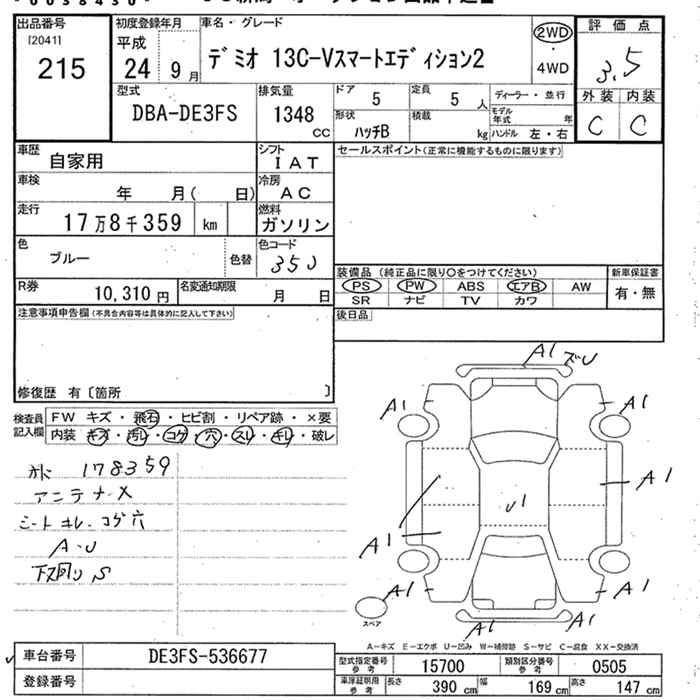 出品番号
[2041]
215
初度登録年月
平成
24年 9月
車名・グレード
デミオ 13C-Vスマートエディション2
2WD
・
4WD
評価点
3.5
外装 内装
C C
型式
DBA-DE3FS
排気量
1348
CC
ドア 5
定員 5 人
形状
ハッチB
積載 kg
ディーラー・並行
モデル年式 年
ハンドル 左・右
車歴
自家用
シフト
IAT
車検 年 月( 日)
冷房
AC
走行
17万8千359 km
燃料
ガソリン
色
ブルー
色替
色コード
35J
R券
10,310 円
名変通知期限
月 日
セールスポイント(正常に機能するものに限ります)
装備品 (純正品に限り○をつけてください)
PS PW ABS エアB AW
SR ナビ TV カワ
新車保証書
有・無
後日品
注意事項申告欄(不具合内容等は具体的に記入して下さい)
修復歴 有〔箇所 〕
検査員記入欄
FW キズ・飛石・ヒビ割・リペア跡・×要
内装 キズ・汚レ・コゲ・穴・スレ・キレ・破レ
178359
アンテナ-X
シート キレ コゲ 穴
A・U
下廻り S
A1
A1
A1
A1
A1
A1
A1
A1
U1
スペア
A-キズ E-エクボ U-凹み W-補修跡 S-サビ C-腐食 XX-交換済
車台番号
DE3FS-536677
登録番号
型式指定番号
参考
15700
類別区分番号
参考
0505
車庫証明用
参考
長さ 390 cm
幅 169 cm
高さ 147 cm